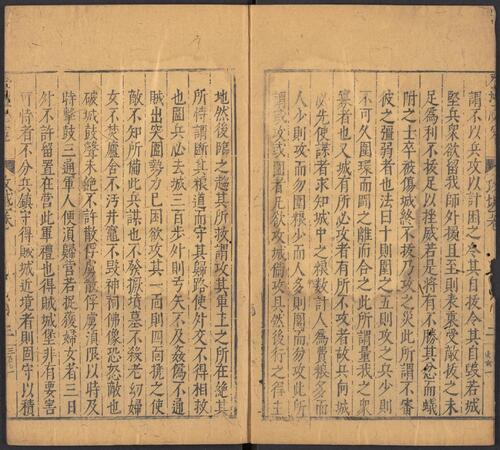 謂不以兵攻以計困之令其自拔令其自毀若城
堅兵衆欲留我師外援且至則表裏受敵拔之未
足爲利不拔足以挫威若是將有不勝其忿而蟻
附之士卒被傷城終不拔乃攻之災此所謂不審
彼之彊弱者也法曰十則圍之五則攻之兵少則
不可久圍環而闕之離而合之此所謂量我之衆
寡者也又城有所必攻者有所不攻者故兵向城
必先使諜者求知城中之粮數計人爲費粮多而
人少則攻而勿圍粮少而人多則圍而勿攻此所
謂或攻或圍者足欲攻城備攻具然後行之得主
地然後臨之趨其所救謂攻其軍主之所在絕其
所恃謂斷其粮道而守其歸路使外交不得相救
也圍兵必去城三百步外則弓矢不及姦僞不通
賊出突圍勢力已困欲攻其一面則四面撓之使
敵不知所備此兵謀也不發掘墳墓不殺老幼婦
女不焚廬舍不汚井竈不毀神祠佛像恐怒敵也
破城鼓聲未絕不許散俘虜散俘虜須限以時及
時擊鼓三通軍人便須歸營若捉獲婦女者三日
外不許留置在營此軍禮也得賊城堡非有要害
可恃者不分兵鎭守得賊城近境者則固守以積